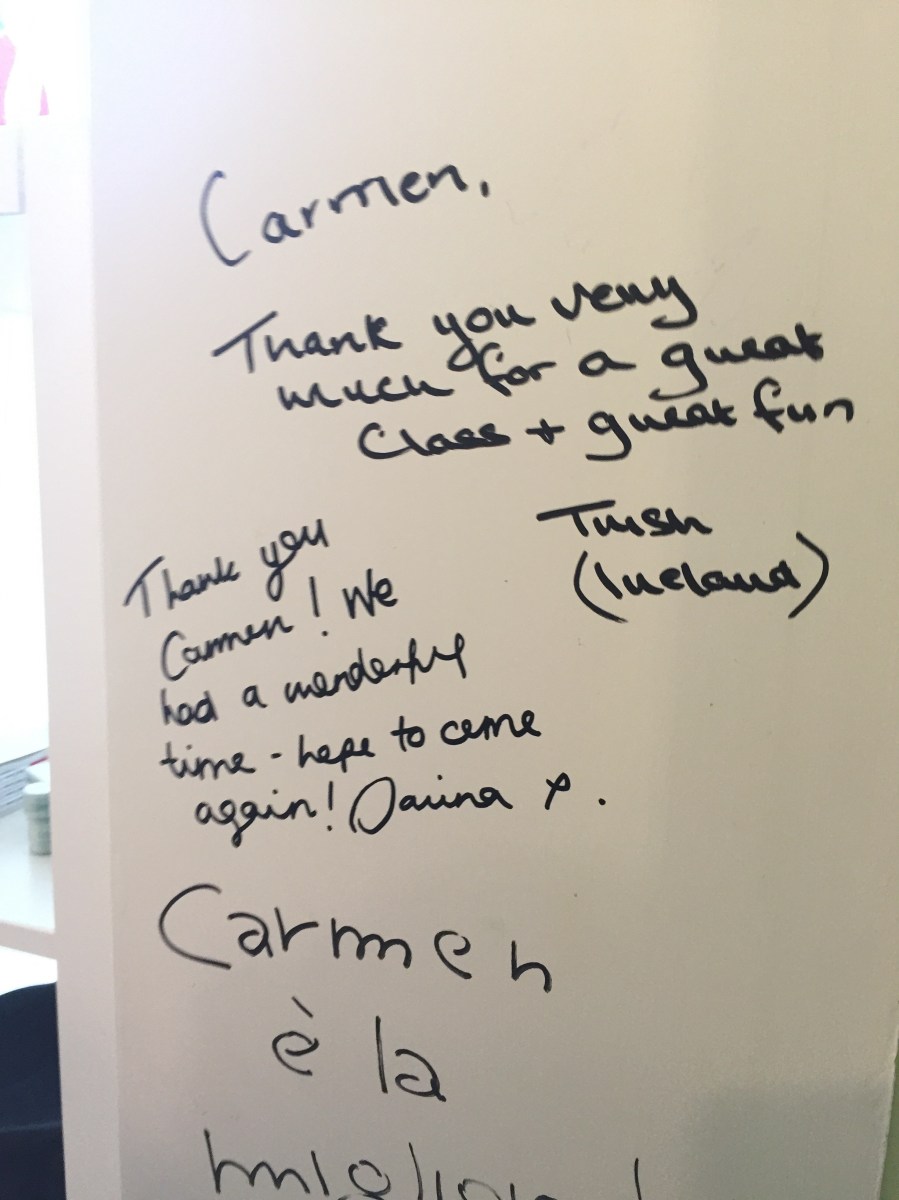 Carmen,
Thank you very
much for a great
Class + great fun
Trish
(Ireland)
Thank you
Carmen! We
had a wonderful
time - hope to come
again! Darina x.
Carmen
è la